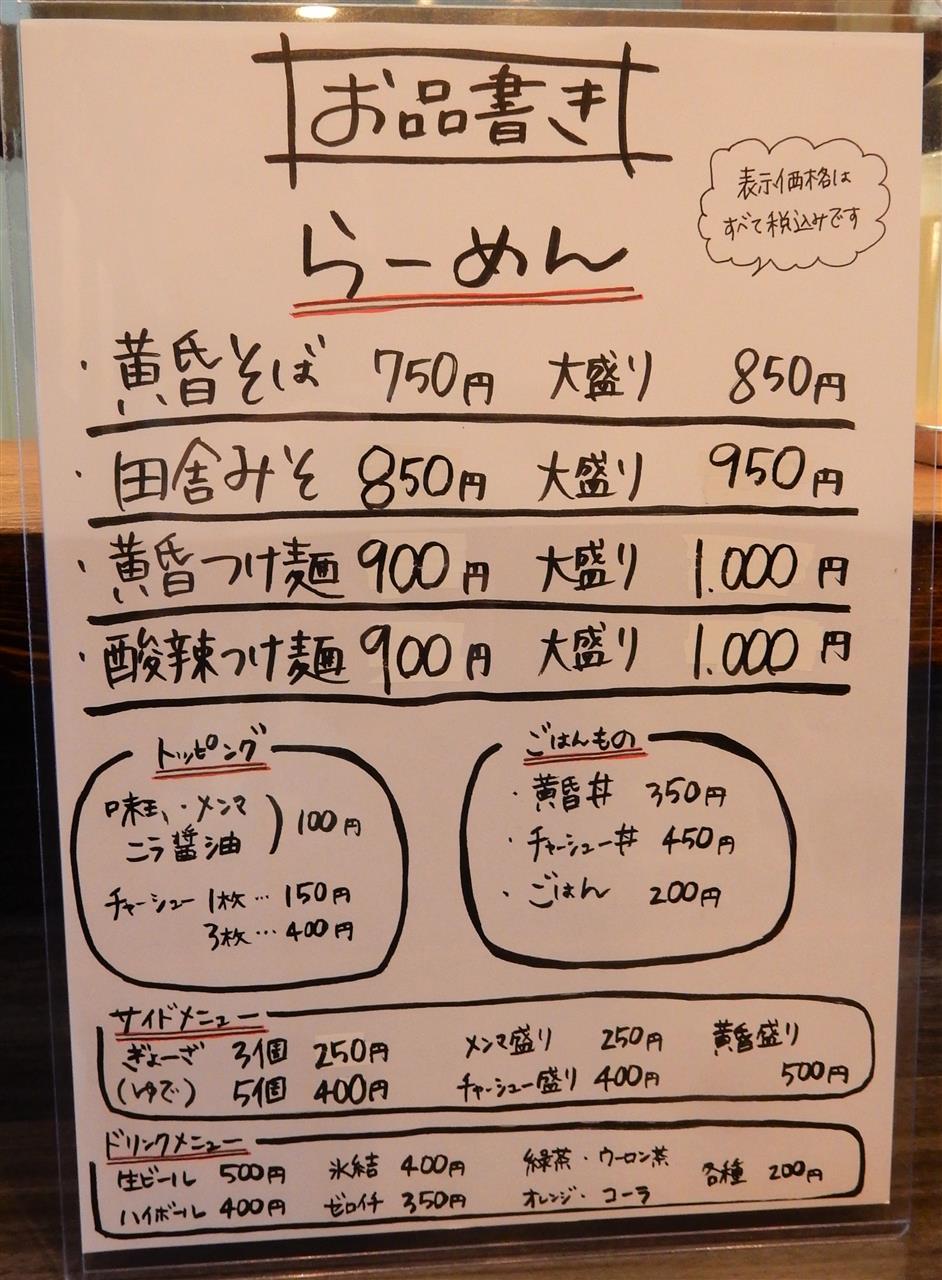 お品書き
表示価格は
すべて税込みです
らーめん
・黄昏そば 750円 大盛り 850円
・田舎みそ 850円 大盛り 950円
・黄昏つけ麺 900円 大盛り 1.000円
・酸辣つけ麺 900円 大盛り 1.000円
トッピング
味玉、・メンマ
ニラ醤油 ) 100円
チャーシュー 1枚… 150円
3枚… 400円
ごはんもの
・黄昏丼 350円
・チャーシュー丼 450円
・ごはん 200円
サイドメニュー
ぎょーざ 3個 250円 メンマ盛り 250円 黄昏盛り
(ゆで) 5個 400円 チャーシュー盛り 400円 500円
ドリンクメニュー
生ビール 500円 氷結 400円 緑茶・ウーロン茶 各種 200円
ハイボール 400円 ゼロイチ 350円 オレンジ・コーラ